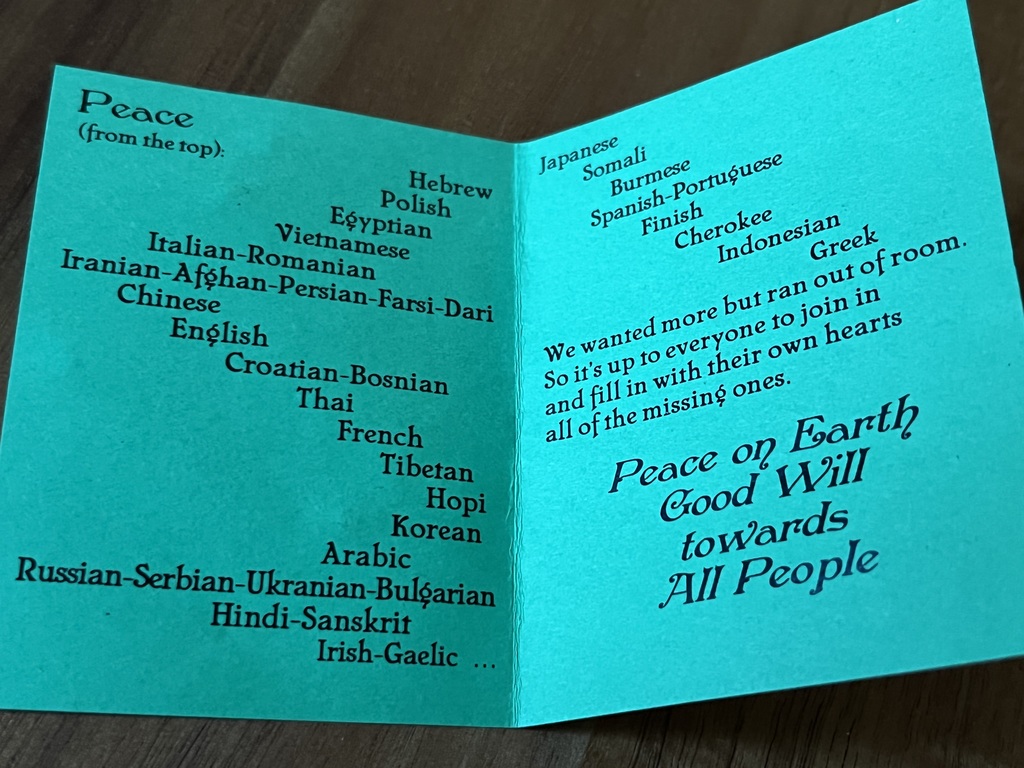 Peace
(from the top):
Hebrew
Polish
Egyptian
Vietnamese
Italian-Romanian
Iranian-Afghan-Persian-Farsi-Dari
Chinese
English
Croatian-Bosnian
Thai
French
Tibetan
Hopi
Korean
Arabic
Russian-Serbian-Ukranian-Bulgarian
Hindi-Sanskrit
Irish-Gaelic ...
Japanese
Somali
Burmese
Spanish-Portuguese
Finish
Cherokee
Indonesian
Greek
We wanted more but ran out of room.
So it's up to everyone to join in
and fill in with their own hearts
all of the missing ones.
Peace on Earth
Good Will
towards
All People